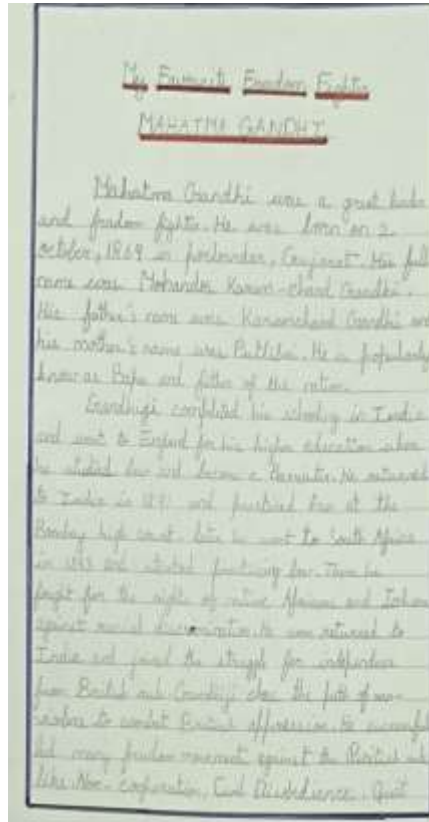 My Favourite Freedom Fighter
MAHATMA GANDHI
Mahatma Gandhi was a great leader
and freedom fighter. He was born on 2
october, 1869 in porbander, Gujarat. His full
name was Mohandas Karam-chand Gandhi.
His father's name was Karamchand Gandhi and
his mother's name was Putlibai. He is popularly
known as Bapu and father of the nation.
Gandhiji completed his schooling in India
and went to England for his higher education where
he studied law and became a Barrister. He returned
to India in 1891 and practised law at the
Bombay high court. Later he went to South Africa
in 1893 and started practicing law. There he
fought for the right of native Africans and Indians
against racial discrimination. He returned to
India and joined the struggle for independence
from British rule. Gandhiji chose the path of non-
violence to combat British oppression. He successful
led many freedom movement against the British rule
like Non-cooperation, Civil Disobedience, Quit